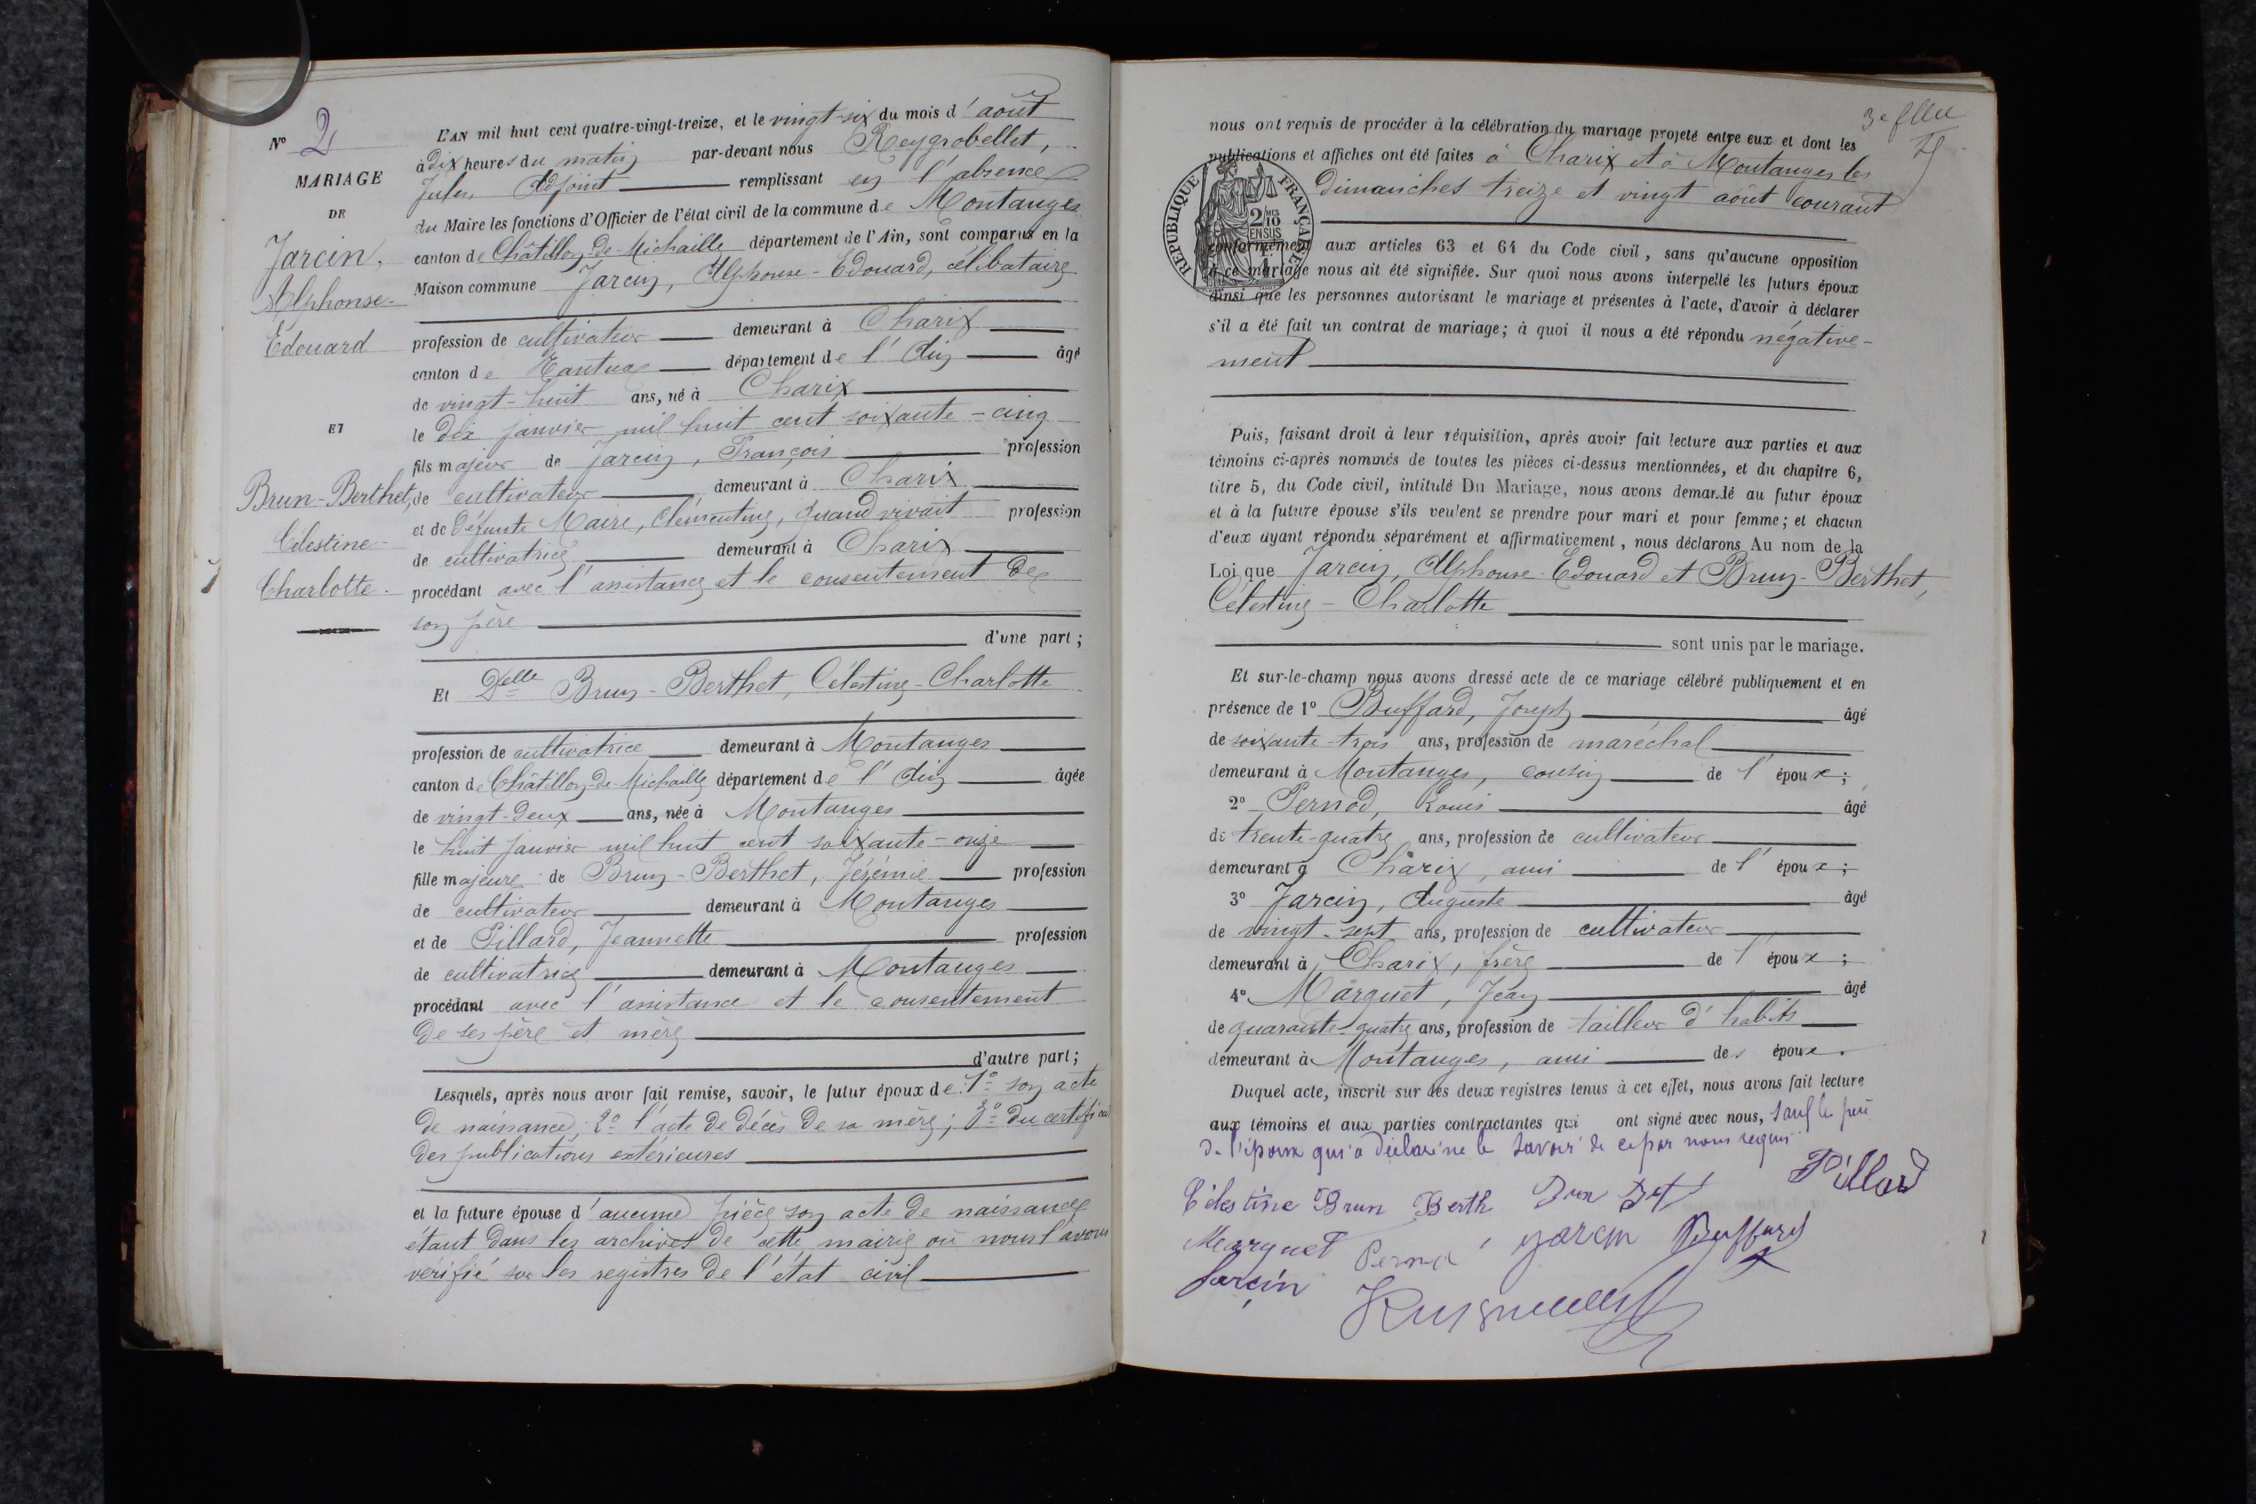 Nº 2
MARIAGE
DE
Jarcin,
Alphonse-
Edouard
ET
Brun-Berthet,
Célestine-
Charlotte.
L'AN mil huit cent quatre-vingt-treize, et le vingt-six du mois d'août
à dix heures du matin par-devant nous Reygrobellet,
Jules, Adjoint remplissant en l'absence
du Maire les fonctions d'Officier de l'état civil de la commune de Montanges
canton de Châtillon-de-Michaille département de l'Ain, sont comparus en la
Maison commune Jarcin, Alphonse-Edouard, célibataire
profession de cultivateur demeurant à Charix
canton de Nantua département de l'Ain âgé
de vingt-huit ans, né à Charix
le dix janvier mil huit cent soixante-cinq
fils majeur de Jarcin, François profession
de cultivateur demeurant à Charix
et de défunte Maire, Clémentine, quand vivait profession
de cultivatrice demeurant à Charix
procédant avec l'assistance et le consentement de
son père
d'une part ;
Et Delle Brun-Berthet, Célestine-Charlotte
profession de cultivatrice demeurant à Montanges
canton de Châtillon-de-Michaille département de l'Ain âgée
de vingt-deux ans, née à Montanges
le huit janvier mil huit cent soixante-onze
fille majeure de Brun-Berthet, Jérémie profession
de cultivateur demeurant à Montanges
et de Pillard, Jeannette profession
de cultivatrice demeurant à Montanges
procédant avec l'assistance et le consentement
de ses père et mère
d'autre part ;
Lesquels, après nous avoir fait remise, savoir, le futur époux de : 1º son acte
de naissance ; 2º l'acte de décès de sa mère ; 3º du certificat
des publications extérieures
et la future épouse d'aucune pièce son acte de naissance
étant dans les archives de cette mairie où nous l'avons
vérifié sur les registres de l'état civil
3e fllet
nous ont requis de procéder à la célébration du mariage projeté entre eux et dont les
publications et affiches ont été faites à Charix et à Montanges les
dimanches treize et vingt août courant
REPUBLIQUE FRANÇAISE
2/10 EN SUS
conformément aux articles 63 et 64 du Code civil, sans qu'aucune opposition
à ce mariage nous ait été signifiée. Sur quoi nous avons interpellé les futurs époux
ainsi que les personnes autorisant le mariage et présentes à l'acte, d'avoir à déclarer
s'il a été fait un contrat de mariage ; à quoi il nous a été répondu négative-
ment
Puis, faisant droit à leur réquisition, après avoir fait lecture aux parties et aux
témoins ci-après nommés de toutes les pièces ci-dessus mentionnées, et du chapitre 6,
titre 5, du Code civil, intitulé Du Mariage, nous avons demandé au futur époux
et à la future épouse s'ils veulent se prendre pour mari et pour femme ; et chacun
d'eux ayant répondu séparément et affirmativement, nous déclarons Au nom de la
Loi que Jarcin, Alphonse-Edouard et Brun-Berthet,
Célestine-Charlotte
sont unis par le mariage.
Et sur-le-champ nous avons dressé acte de ce mariage célébré publiquement et en
présence de 1º Buffard, Joseph âgé
de soixante-trois ans, profession de maréchal
demeurant à Montanges, cousin de l'époux ;
2º Pernod, Louis âgé
de trente-quatre ans, profession de cultivateur
demeurant à Charix, ami de l'époux ;
3º Jarcin, Auguste âgé
de vingt-sept ans, profession de cultivateur
demeurant à Charix, frère de l'époux ;
4º Marquet, Jean âgé
de quarante-quatre ans, profession de tailleur d'habits
demeurant à Montanges, ami des époux.
Duquel acte, inscrit sur les deux registres tenus à cet effet, nous avons fait lecture
aux témoins et aux parties contractantes qui ont signé avec nous, sauf le père
de l'époux qui a déclaré ne le savoir de ce par nous requis
Célestine Brun Berth Pillard
Marquet Pernod Jarcin Buffard
Jarcin